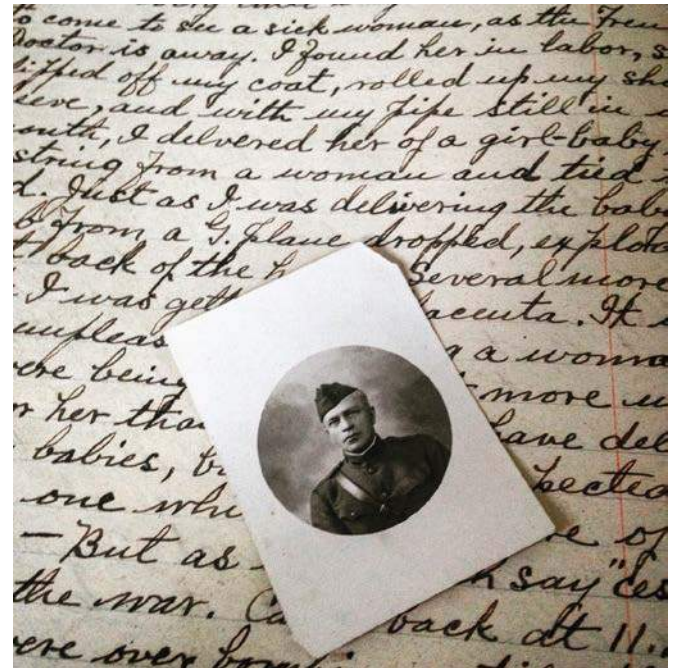 to come to see a sick woman, as the Fren
Doctor is away. I found her in labor, s
lipped off my coat, rolled up my sh
eeve, and with my pipe still in
outh, I delvered her of a girl-baby
string from a woman and tied
d. Just as I was delivering the bab
b from a G. plane dropped, explod
t back of the h Several more
I was gett acenta. It
unpleas g a woma
ere being more u
r her tha have del
babies, b pected
one whi e of
- But as h say "ces
the war. Ca back at 11.
ere over bomb